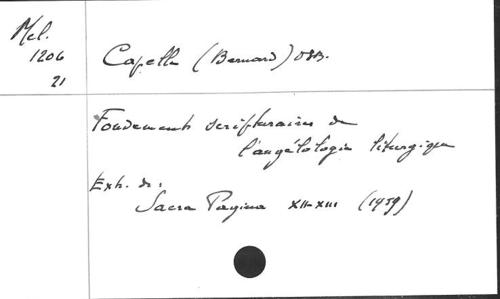 Mel.
1206
21
Capelle (Bernard) OSB.
Fondements scripturaires de
l'angélologie liturgique
Extr. de:
Sacra Pagina XII-XIII (1959)